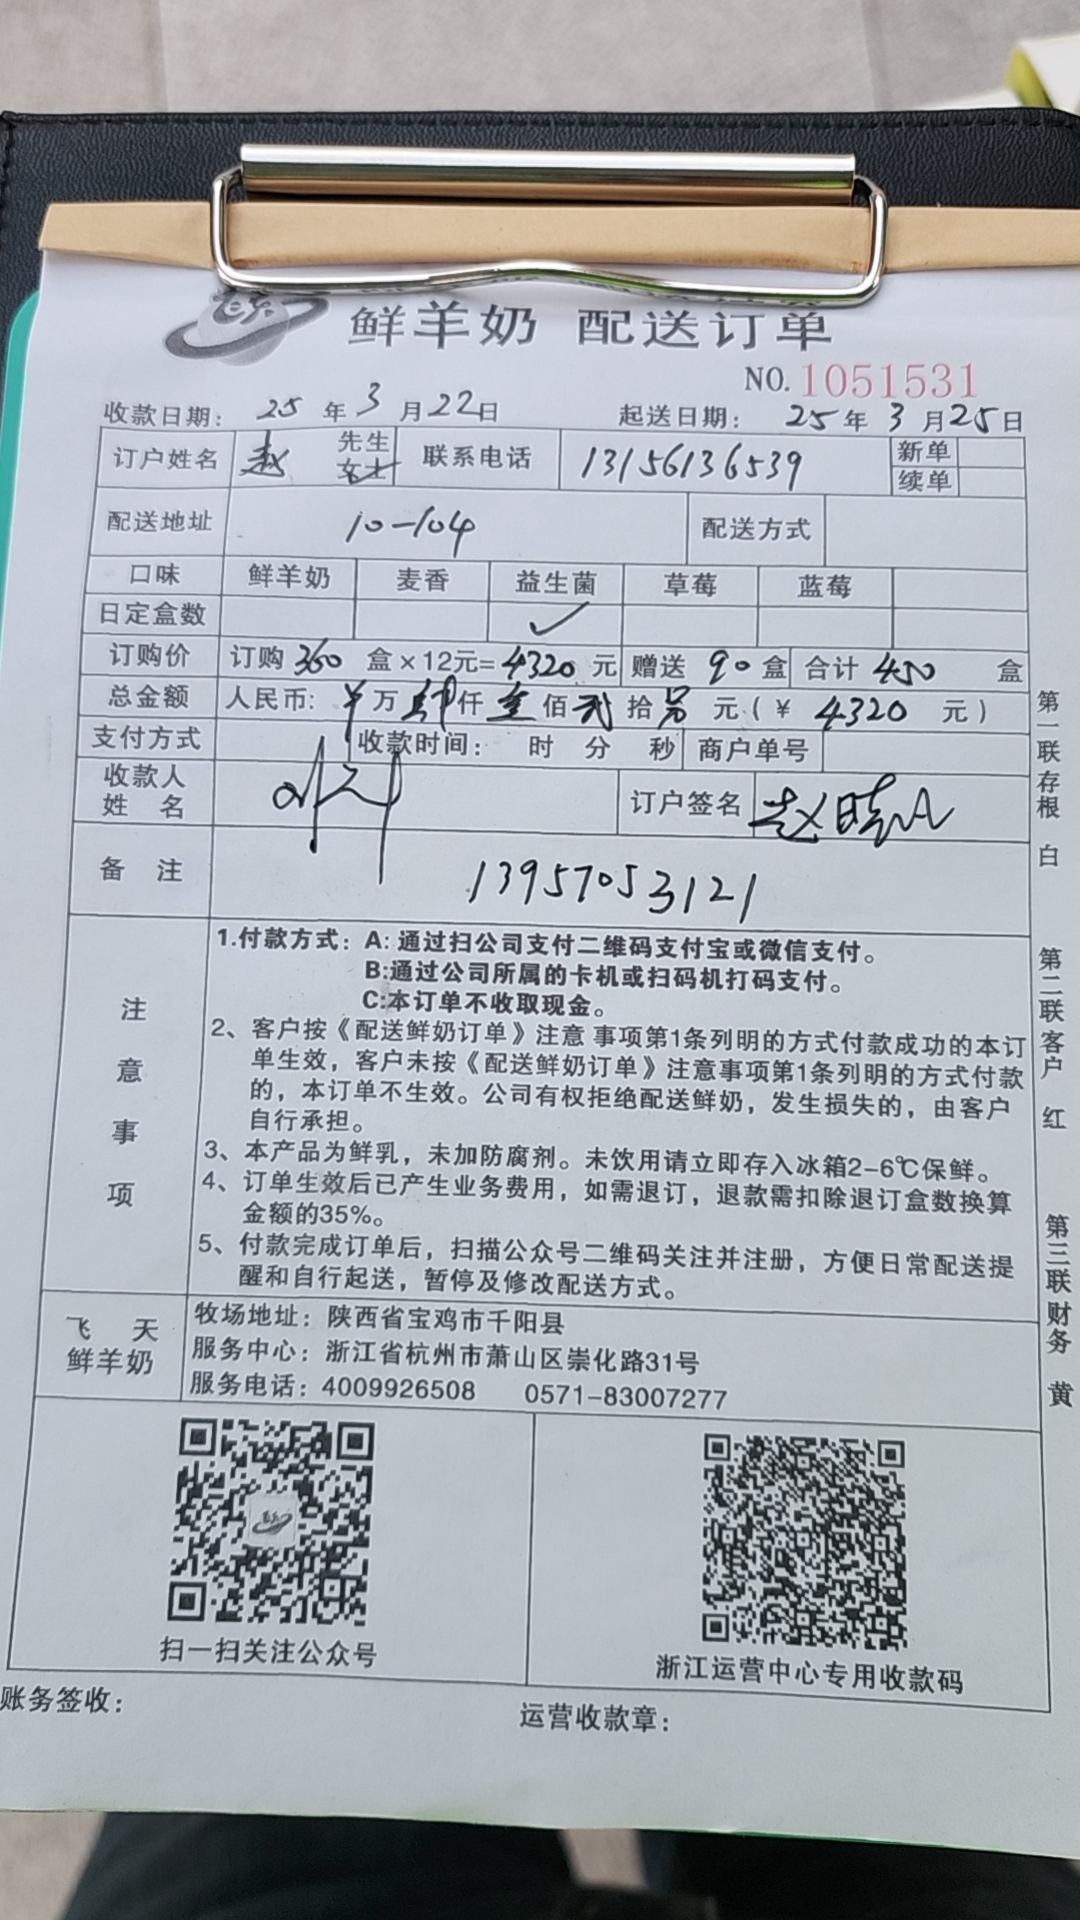 鲜羊奶 配送订单
NO.1051531
收款日期: 25 年 3 月 22 日 起送日期: 25 年 3 月 25 日
订户姓名 赵 先生 女士 联系电话 13156136539 新单 续单
配送地址 10-104 配送方式
口味 鲜羊奶 麦香 益生菌 草莓 蓝莓
日定盒数 ✓
订购价 订购 360 盒×12元= 4320 元 赠送 90 盒 合计 450 盒
总金额 人民币: 万 肆 仟 佰 贰 拾 元(¥ 4320 元)
支付方式 收款时间: 时 分 秒 商户单号
收款人姓 名 订户签名 赵晓
备 注 13957053121
注意事项
1.付款方式: A:通过扫公司支付二维码支付宝或微信支付。
B:通过公司所属的卡机或扫码机打码支付。
C:本订单不收取现金。
2、客户按《配送鲜奶订单》注意 事项第1条列明的方式付款成功的本订
单生效，客户未按《配送鲜奶订单》注意事项第1条列明的方式付款
的，本订单不生效。公司有权拒绝配送鲜奶，发生损失的，由客户
自行承担。
3、本产品为鲜乳，未加防腐剂。未饮用请立即存入冰箱2-6℃保鲜。
4、订单生效后已产生业务费用，如需退订，退款需扣除退订盒数换算
金额的35%。
5、付款完成订单后，扫描公众号二维码关注并注册，方便日常配送提
醒和自行起送，暂停及修改配送方式。
飞 天
鲜羊奶
牧场地址: 陕西省宝鸡市千阳县
服务中心: 浙江省杭州市萧山区崇化路31号
服务电话: 4009926508 0571-83007277
扫一扫关注公众号
浙江运营中心专用收款码
账务签收:
运营收款章:
第一联存根 白
第二联客户 红
第三联财务 黄